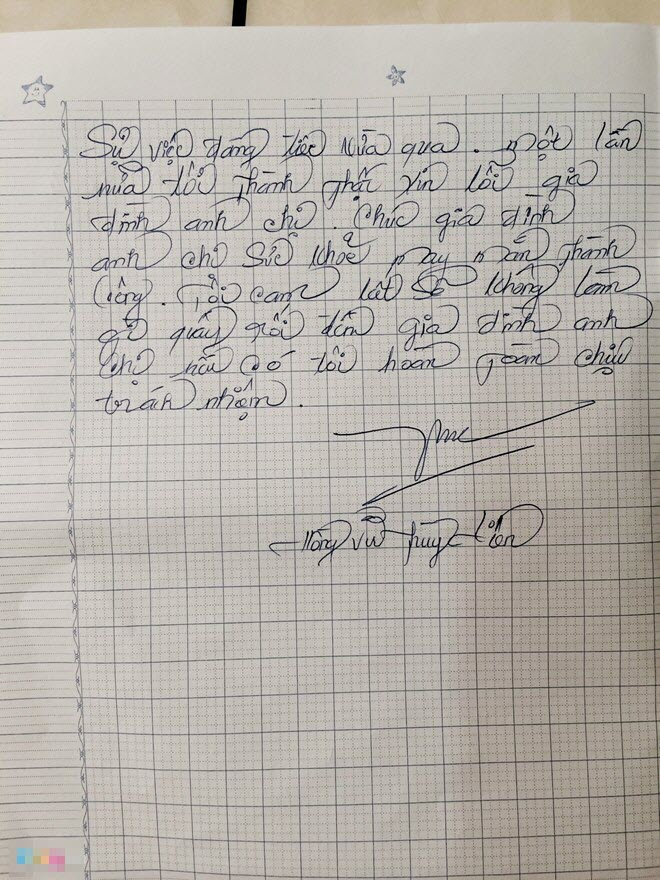 Sự việc đáng tiếc vừa qua. một lần
nữa tôi thành thật xin lỗi gia
đình anh chị. Chúc gia đình
anh chị sức khoẻ may mắn thành
công. Tôi cam kết sẽ không làm
gì quấy rối đến gia đình anh
chị nếu có tôi hoàn toàn chịu
trách nhiệm.